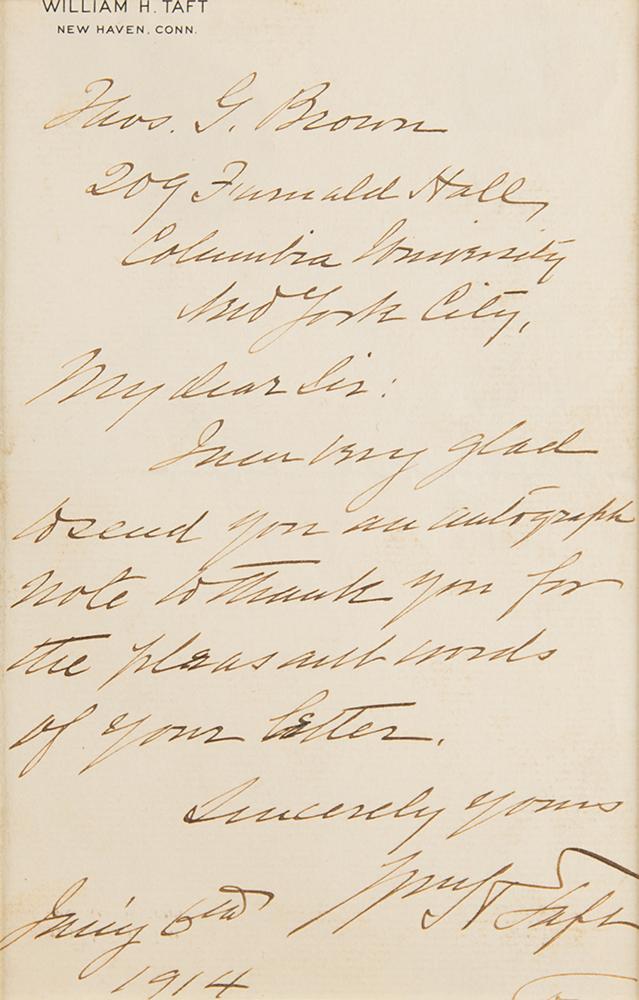 WILLIAM H. TAFT
NEW HAVEN, CONN.
Thos. G. Brown
209 Furnald Hall,
Columbia University
New York City,
My dear Sir:
I am very glad
to send you an autograph
note to thank you for
the pleasant words
of your letter.
Sincerely yours
Wm H Taft
Jan'y
1914